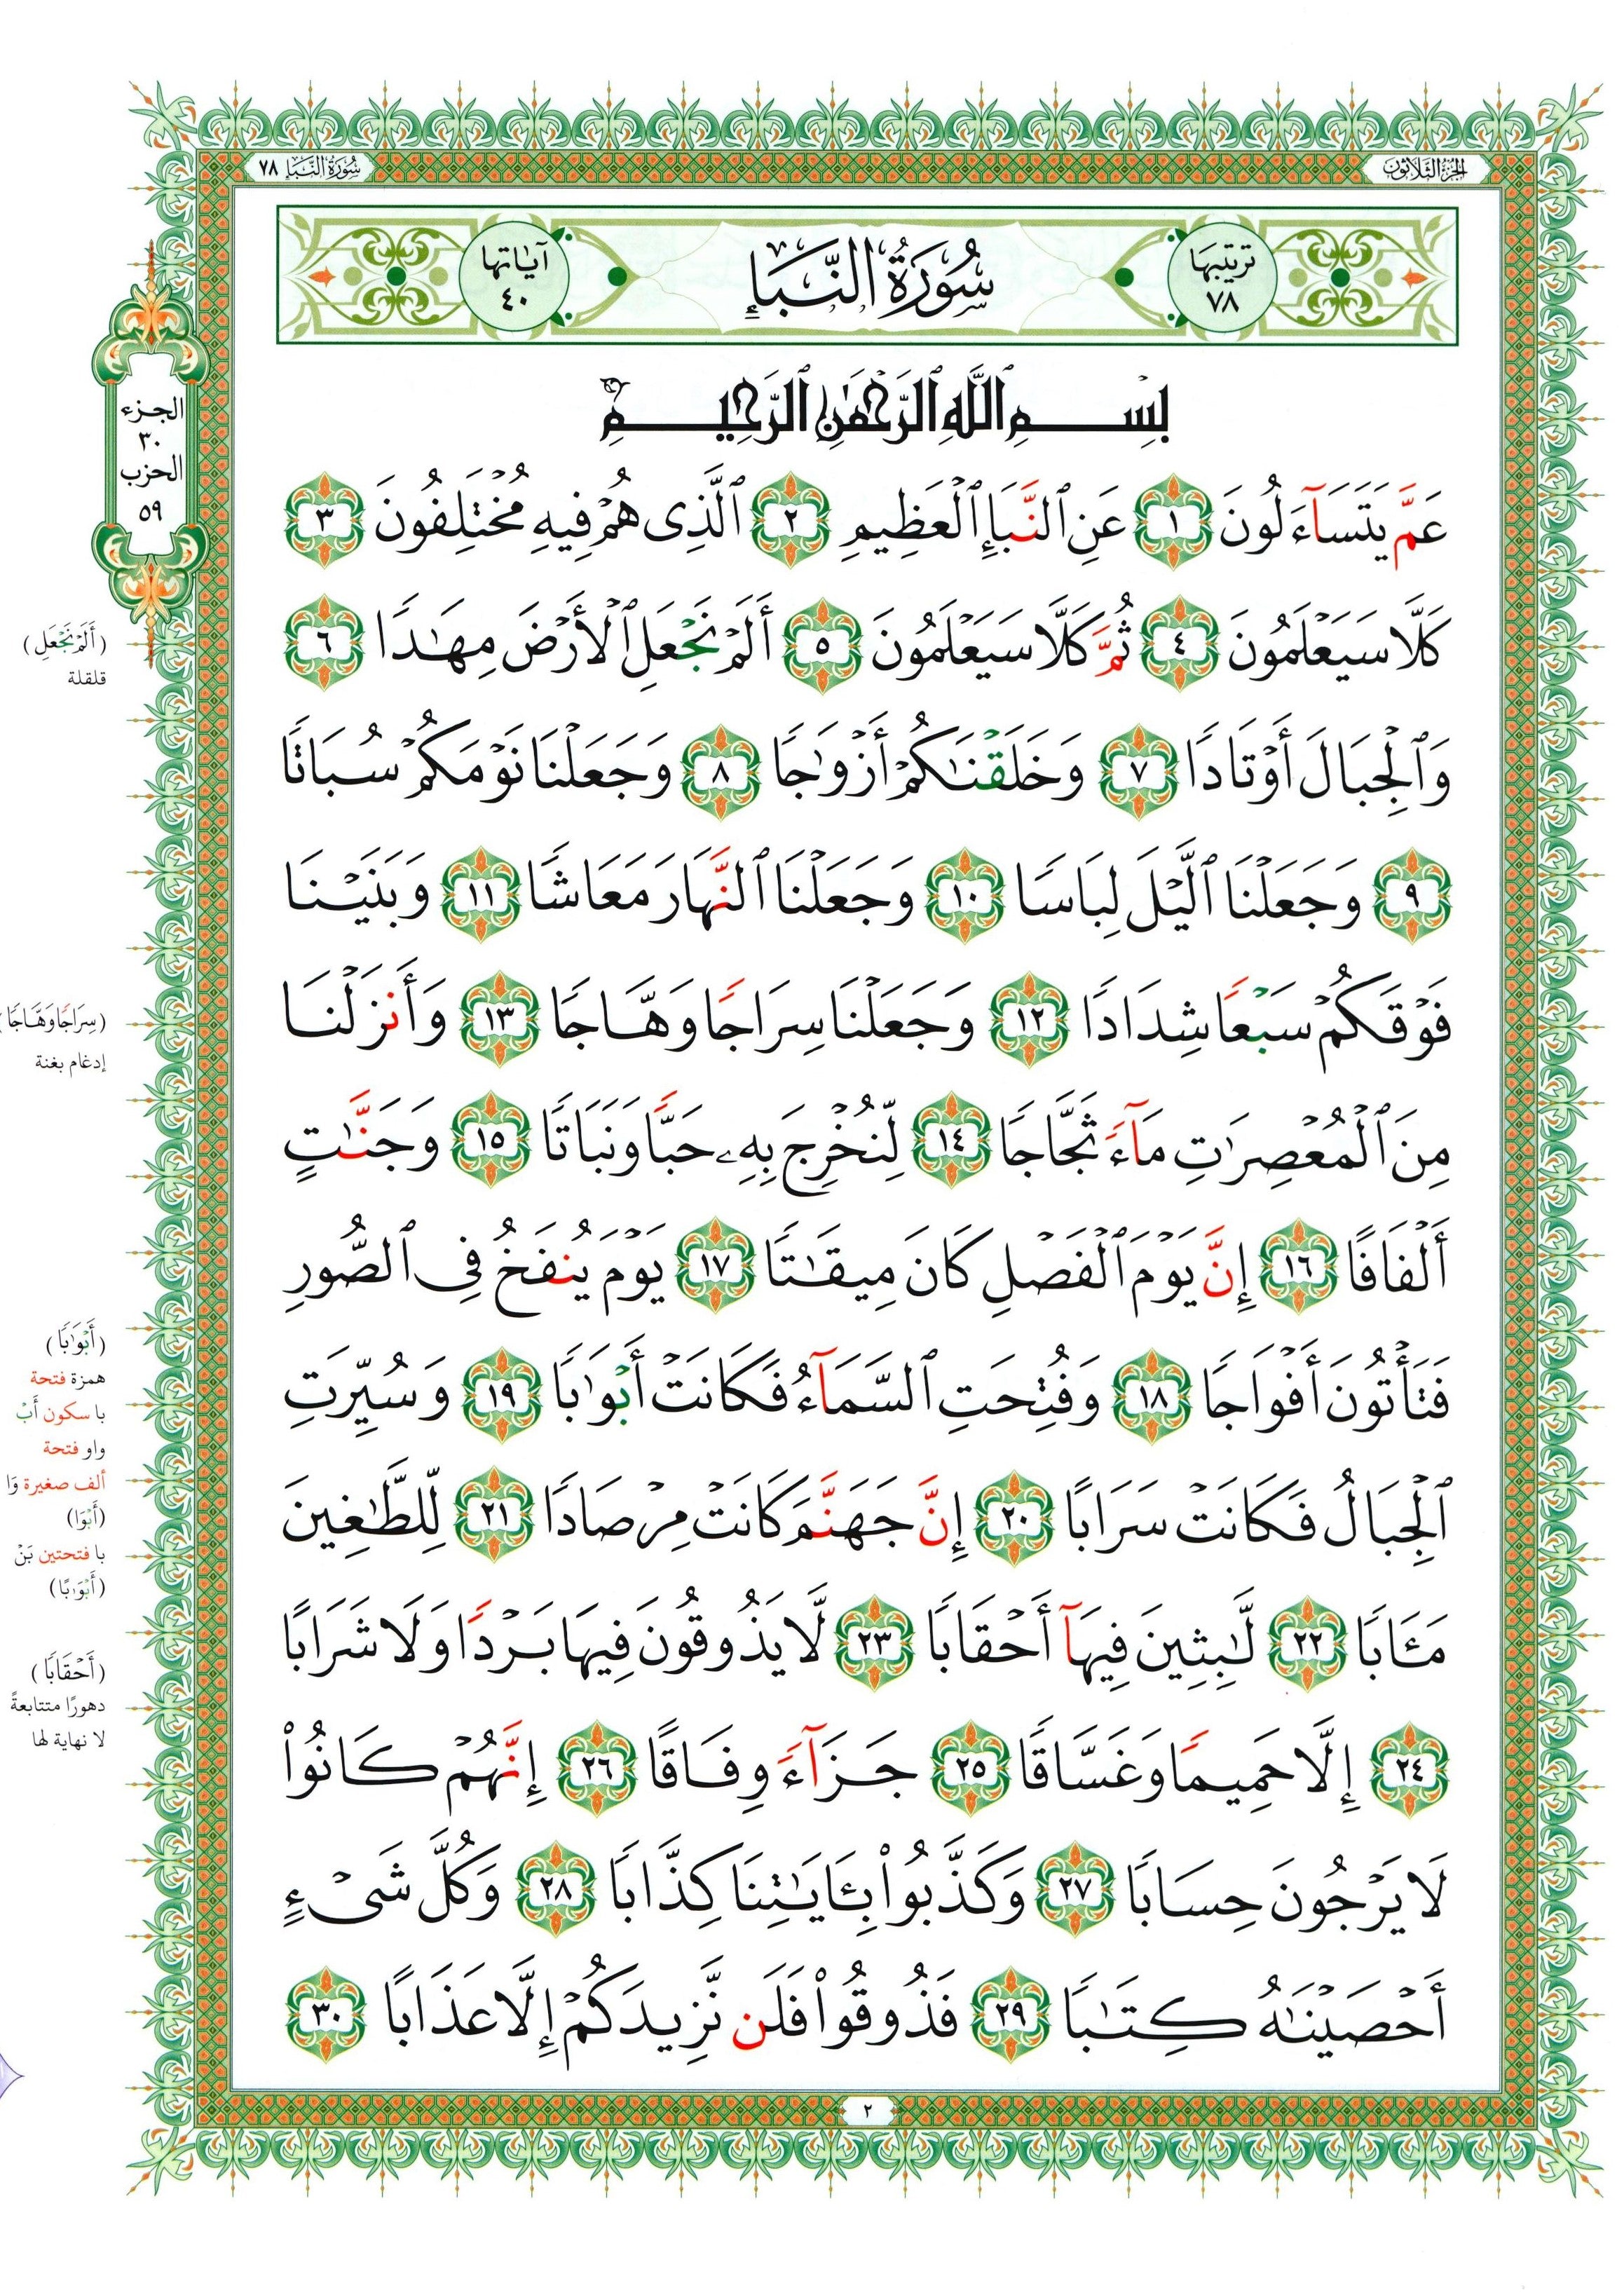 الجزء الثلاثون
سورة النبإ ٧٨
ترتيبها
٧٨
سُورَةُ النَّبَإِ
آياتها
٤٠
بِسْمِ ٱللَّهِ ٱلرَّحْمَٰنِ ٱلرَّحِيمِ
عَمَّ يَتَسَآءَلُونَ ١ عَنِ ٱلنَّبَإِ ٱلْعَظِيمِ ٢ ٱلَّذِى هُمْ فِيهِ مُخْتَلِفُونَ ٣
كَلَّا سَيَعْلَمُونَ ٤ ثُمَّ كَلَّا سَيَعْلَمُونَ ٥ أَلَمْ نَجْعَلِ ٱلْأَرْضَ مِهَٰدًا ٦
وَٱلْجِبَالَ أَوْتَادًا ٧ وَخَلَقْنَٰكُمْ أَزْوَٰجًا ٨ وَجَعَلْنَا نَوْمَكُمْ سُبَاتًا
٩ وَجَعَلْنَا ٱلَّيْلَ لِبَاسًا ١٠ وَجَعَلْنَا ٱلنَّهَارَ مَعَاشًا ١١ وَبَنَيْنَا
فَوْقَكُمْ سَبْعًا شِدَادًا ١٢ وَجَعَلْنَا سِرَاجًا وَهَّاجًا ١٣ وَأَنزَلْنَا
مِنَ ٱلْمُعْصِرَٰتِ مَآءً ثَجَّاجًا ١٤ لِّنُخْرِجَ بِهِۦ حَبًّا وَنَبَاتًا ١٥ وَجَنَّٰتٍ
أَلْفَافًا ١٦ إِنَّ يَوْمَ ٱلْفَصْلِ كَانَ مِيقَٰتًا ١٧ يَوْمَ يُنفَخُ فِى ٱلصُّورِ
فَتَأْتُونَ أَفْوَاجًا ١٨ وَفُتِحَتِ ٱلسَّمَآءُ فَكَانَتْ أَبْوَٰبًا ١٩ وَسُيِّرَتِ
ٱلْجِبَالُ فَكَانَتْ سَرَابًا ٢٠ إِنَّ جَهَنَّمَ كَانَتْ مِرْصَادًا ٢١ لِّلطَّٰغِينَ
مَـَٔابًا ٢٢ لَّٰبِثِينَ فِيهَآ أَحْقَابًا ٢٣ لَّا يَذُوقُونَ فِيهَا بَرْدًا وَلَا شَرَابًا
٢٤ إِلَّا حَمِيمًا وَغَسَّاقًا ٢٥ جَزَآءً وِفَاقًا ٢٦ إِنَّهُمْ كَانُوا۟
لَا يَرْجُونَ حِسَابًا ٢٧ وَكَذَّبُوا۟ بِـَٔايَٰتِنَا كِذَّابًا ٢٨ وَكُلَّ شَىْءٍ
أَحْصَيْنَٰهُ كِتَٰبًا ٢٩ فَذُوقُوا۟ فَلَن نَّزِيدَكُمْ إِلَّا عَذَابًا ٣٠
٢
الجزء
٣٠
الحزب
٥٩
(أَلَمْ نَجْعَلِ)
قلقلة
(سِرَاجًا وَهَّاجًا)
إدغام بغنة
(أَبْوَٰبًا)
همزة فتحة
با سكون أَبْ
واو فتحة
ألف صغيرة وَا
(أَبْوَا)
با فتحتين بَنْ
(أَبْوَٰبًا)
(أَحْقَابًا)
دهورًا متتابعةً
لا نهاية لها